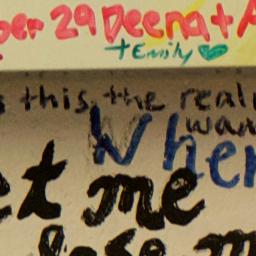 ber 29 Deena + A
+ Emily
s this the real
wan
When
et me
lose m